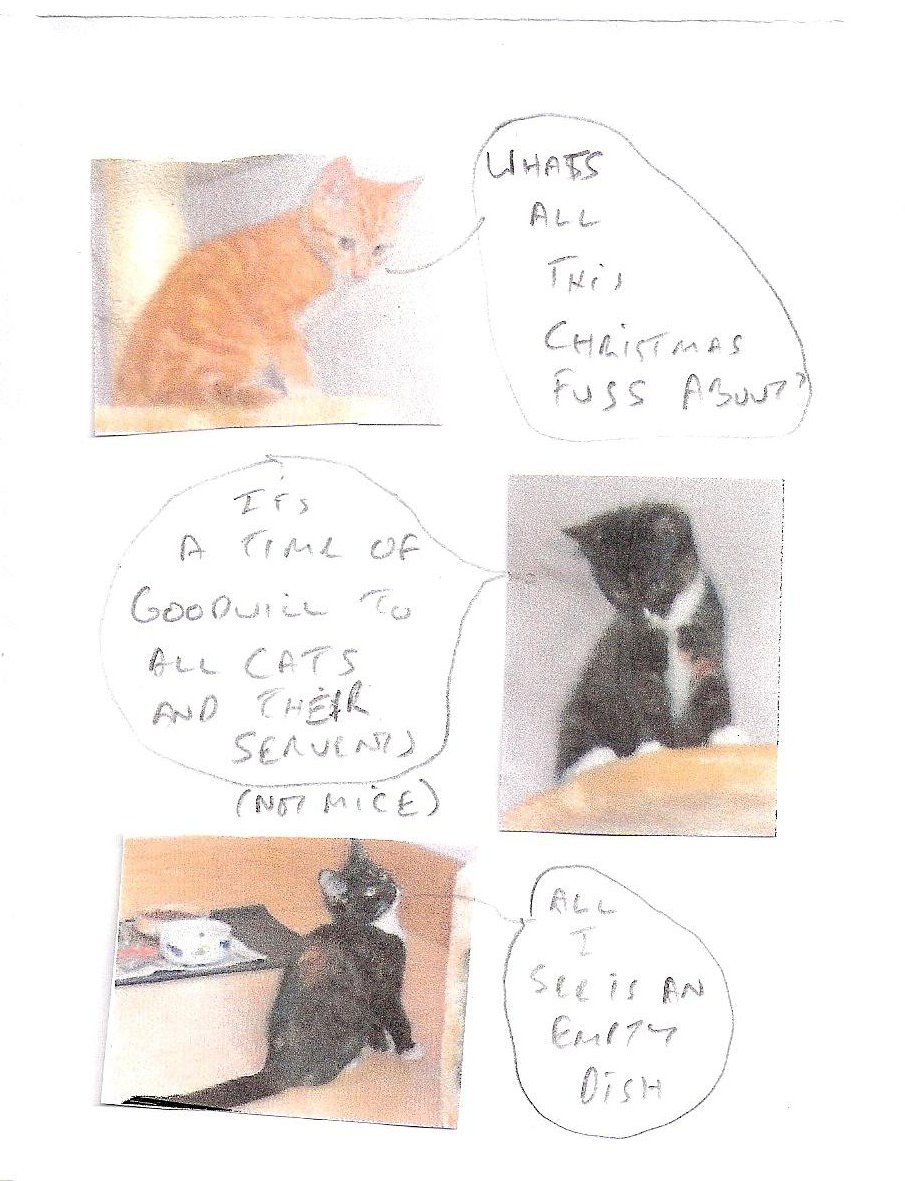 WHATS
ALL
THIS
CHRISTMAS
FUSS ABOUT?
ITS
A TIME OF
GOODWILL TO
ALL CATS
AND THEIR
SERVENTS
(NOT MICE)
ALL
I
SEE IS AN
EMPTY
DISH